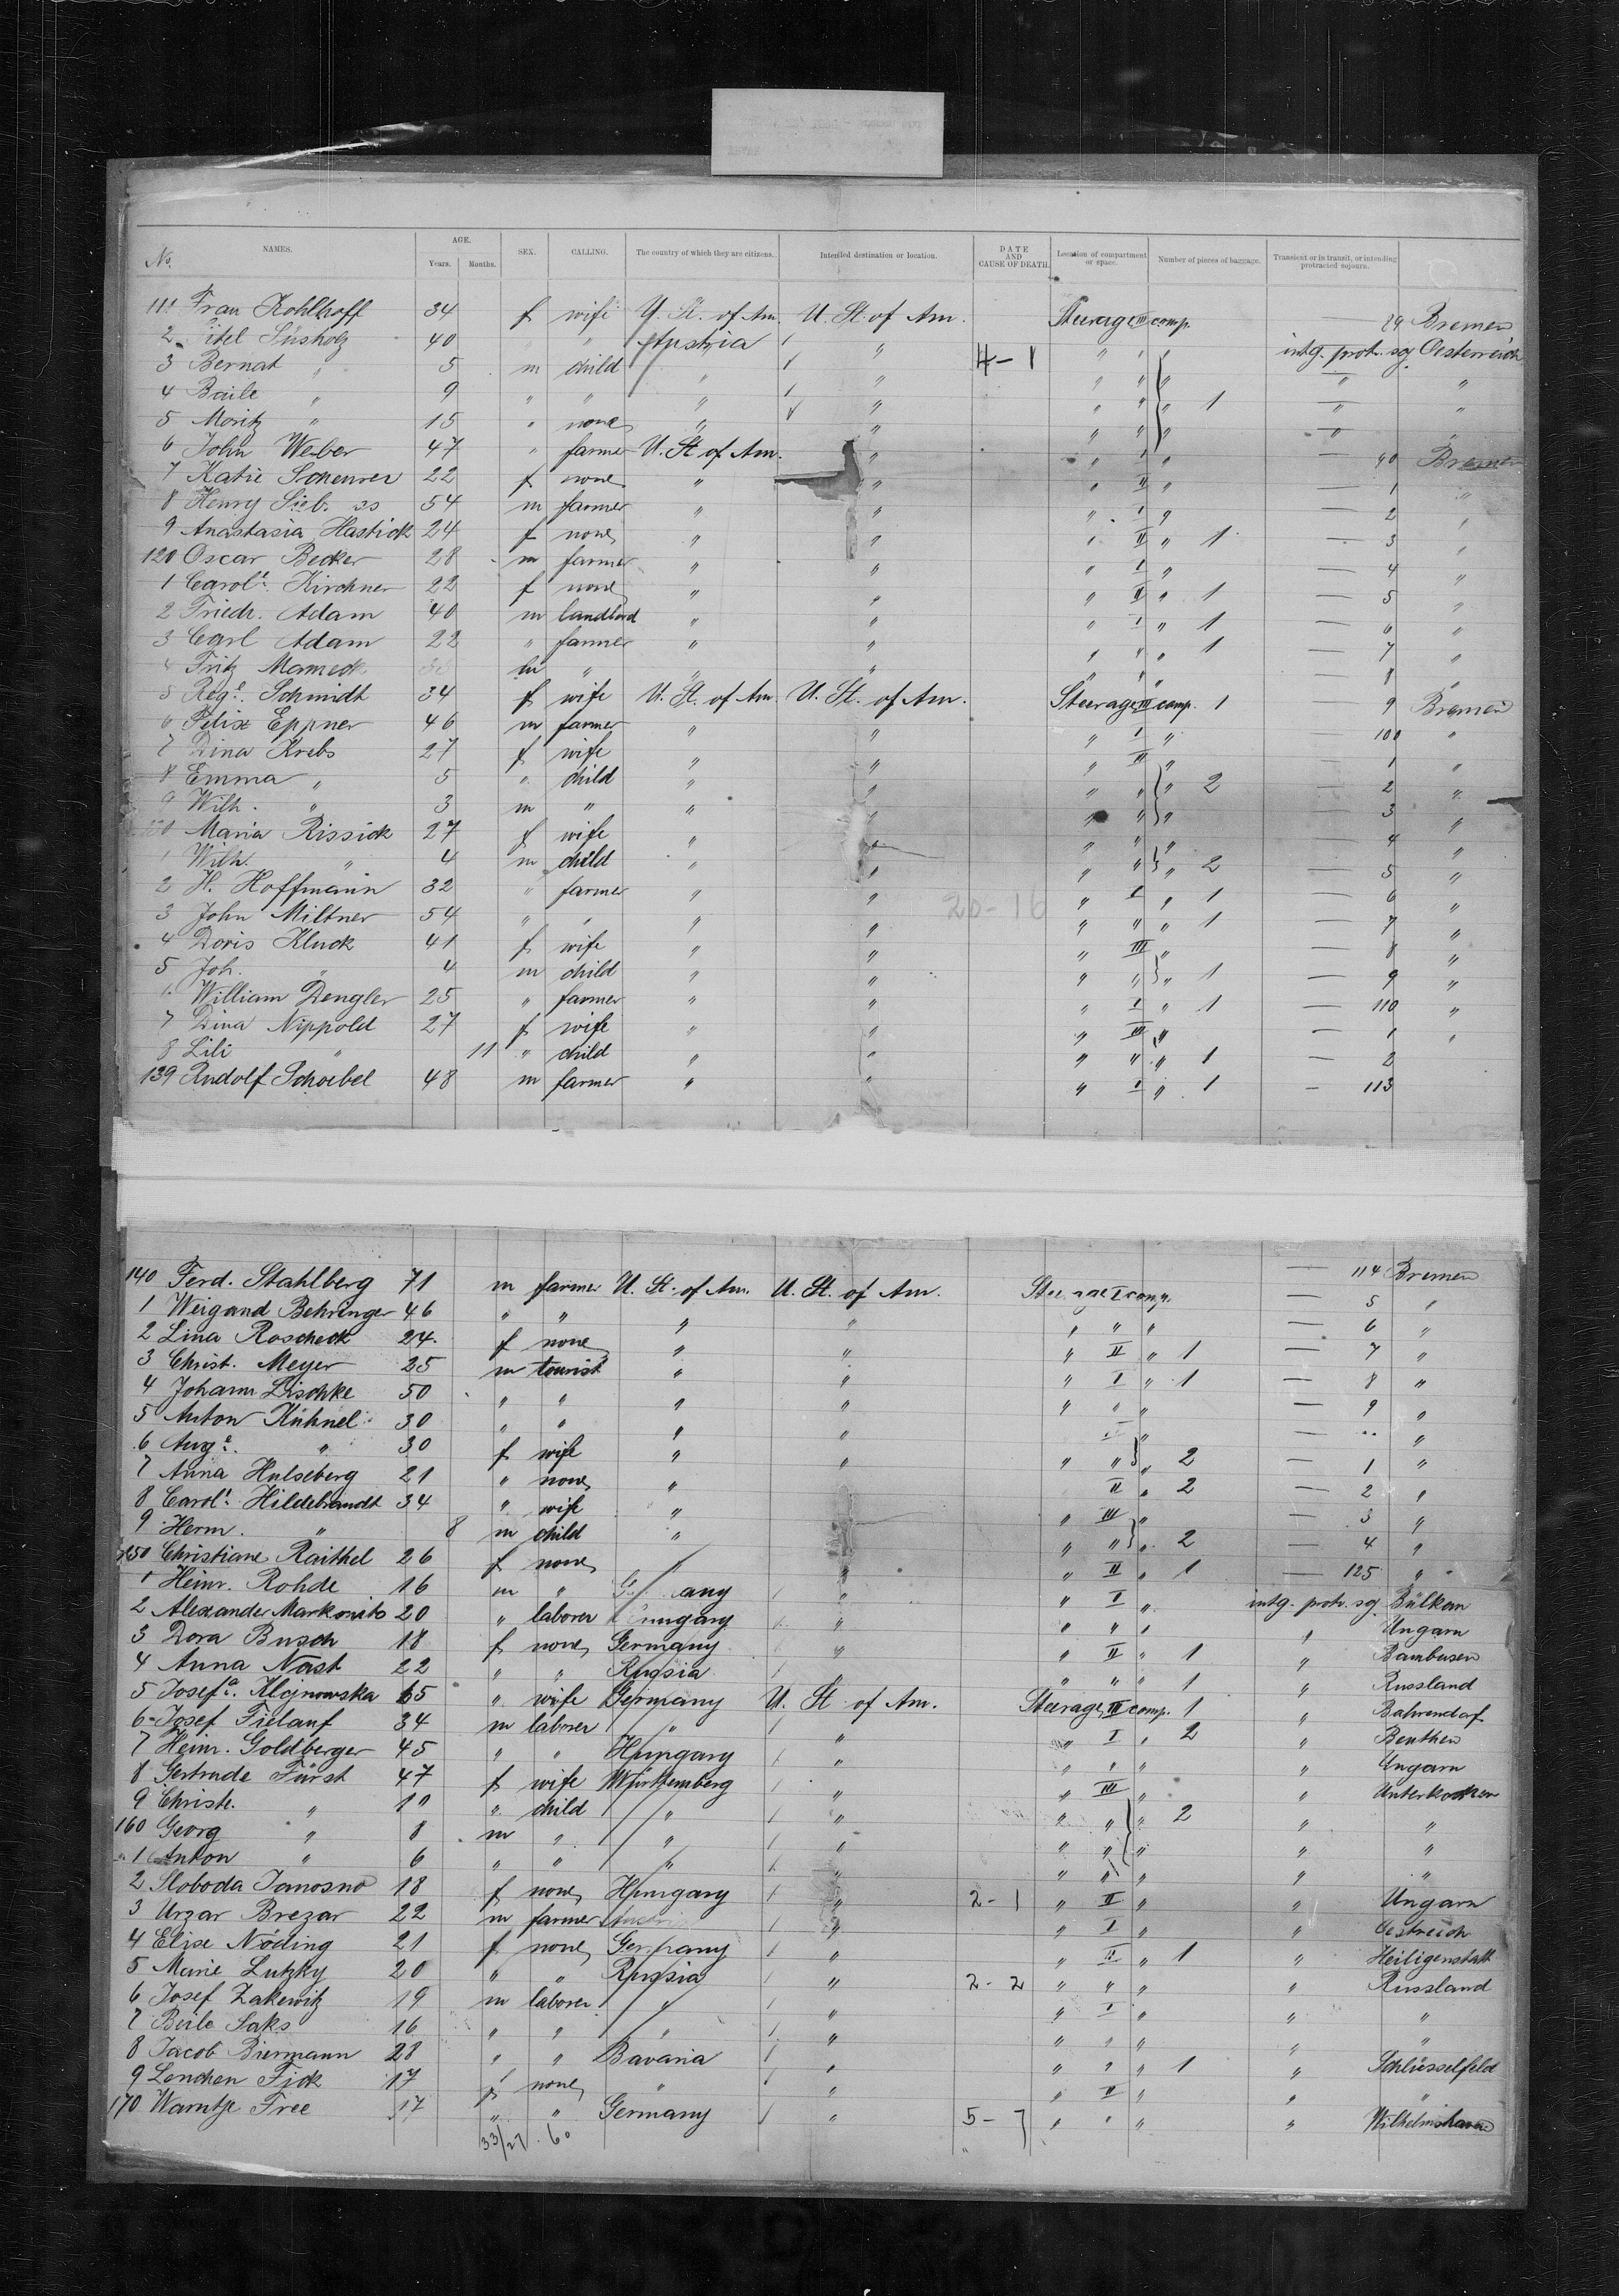 No. NAMES. AGE. Years. Months. SEX. CALLING. The country of which they are citizens. Intended destination or location. DATE AND CAUSE OF DEATH. Location of compartment or space. Number of pieces of baggage. Transient or in transit, or intending protracted sojourn.
111 Frau Kohlhoff 34 f wife U. St. of Am. U. St. of Am. Steerage III comp. — 89 Bremen
2 Süsholz 40 " " Austria " " " " intg. protr. soj. Oesterreich
3 Bernat " 5 m child " " 4-1 " " " " "
4 Baile " 9 " " " " " " " 1 " "
5 Moritz " 15 " none " " " " " " "
6 John Weber 47 " farmer U. St of Am. " " I " — 90 Bremen
7 Katie Scheurer 22 f none " " " II " — 1 "
8 Henry 54 m farmer " " " I " — 2 "
9 Anastasia Hastick 24 f none " " " II " 1 — 3 "
120 Oscar Becker 28 m farmer " " " I " — 4 "
1 Carole. Kirchner 22 f none " " " II " 1 — 5 "
2 Friedr. Adam 40 m landlord " " " I " 1 — 6 "
3 Carl Adam 22 " farmer " " " " " 1 — 7 "
4 Fritz Mameck m " " " " " " — 8 "
5 Rege. Schmidt 34 f wife U. St. of Am. U. St. of Am. Steerage III comp. 1 — 9 Bremen
6 Felix Eppner 46 m farmer " " " I " — 100 "
7 Dina Krebs 27 f wife " " " III " — 1 "
8 Emma " 5 " child " " " " " 2 — 2 "
9 Wilh. " 3 m " " " " " " — 3 "
130 Maria Rissick 27 f wife " " " " " — 4 "
1 Wilh. " 4 m child " " " " " 2 — 5 "
2 H. Hoffmann 32 " farmer " " " I " 1 — 6 "
3 John Miltner 54 " " " " 20-16 " " " 1 — 7 "
4 Doris Kluck 41 f wife " " " III " — 8 "
5 Joh. " 4 m child " " " " " 1 — 9 "
6 William Dengler 25 " farmer " " " I " 1 — 110 "
7 Dina Nippold 27 f wife " " " III " — 1 "
8 Lili " 11 " child " " " " " 1 — 2
139 Rudolf Schoebel 48 m farmer " " " I " 1 — 113
140 Ferd. Stahlberg 71 m farmer U. St. of Am. U. St. of Am. Steerage I comp. — 114 Bremen
1 Weigand Behringer 46 " " " " " " " — 5 "
2 Lina Roscheck 24 f none " " " II " 1 — 6 "
3 Christ. Meyer 25 m tourist " " " I " 1 — 7 "
4 Johann Lischke 50 " " " " " " " — 8 "
5 Anton Kühnel 30 " " " " I " — 9 "
6 Auge. " 30 f wife " " " " " 2 — "
7 Anna Hulseberg 21 " none " II " 2 — 1 "
8 Carole. Hildebrandt 34 " wife " " III " — 2 "
9 Herm. " 8 m child " " " " 2 — 3 "
150 Christiane Raithel 26 f none " " " II " 1 — 4 "
1 Heinr. Rohde 16 m " Germany " " I " — 125 "
2 Alexander Markovits 20 " laborer Hungary " " " " intg. protr. soj. Bülkau
3 Dora Busch 18 f none Germany " " II " 1 " Ungarn
4 Anna Nast 22 " " Russia " " " " 1 " Bambusen
5 Josefa. Klojnowska 65 " wife Germany U. St of Am. Steerage III comp. 1 " Russland
6 Josef Fielauf 34 m laborer " " " I " 2 " Bahrendorf
7 Heinr. Goldberger 45 " " Hungary " " " " " Beuthen
8 Gertrude Fürst 47 f wife Württemberg " " III " " Ungarn
9 Christ. " 10 " child " " " " " 2 " Unterkochen
160 Georg " 8 m " " " " " " " "
1 Anton " 6 " " " " " " " " "
2 Sloboda Janosno 18 f none Hungary " 2-1 " II " " Ungarn
3 Urzar Brezar 22 m farmer Austria " " I " " Oestreich
4 Elise Nöding 21 f none Germany " " II " 1 " Heiligenstatt
5 Marie Lutzky 20 " " Russia " 2-2 " " " " Russland
6 Josef Zakewitz 19 m laborer " " " I " " "
7 Beile Saks 16 " " " " " " " " "
8 Jacob Biermann 28 " " Bavaria " " " " 1 " Schlüsselfeld
9 Lenchen Fick 17 f none " " " II " " "
170 Warntje Free 17 " " Germany " 5-7 " " " " Wilhelmshaven
33/27 60